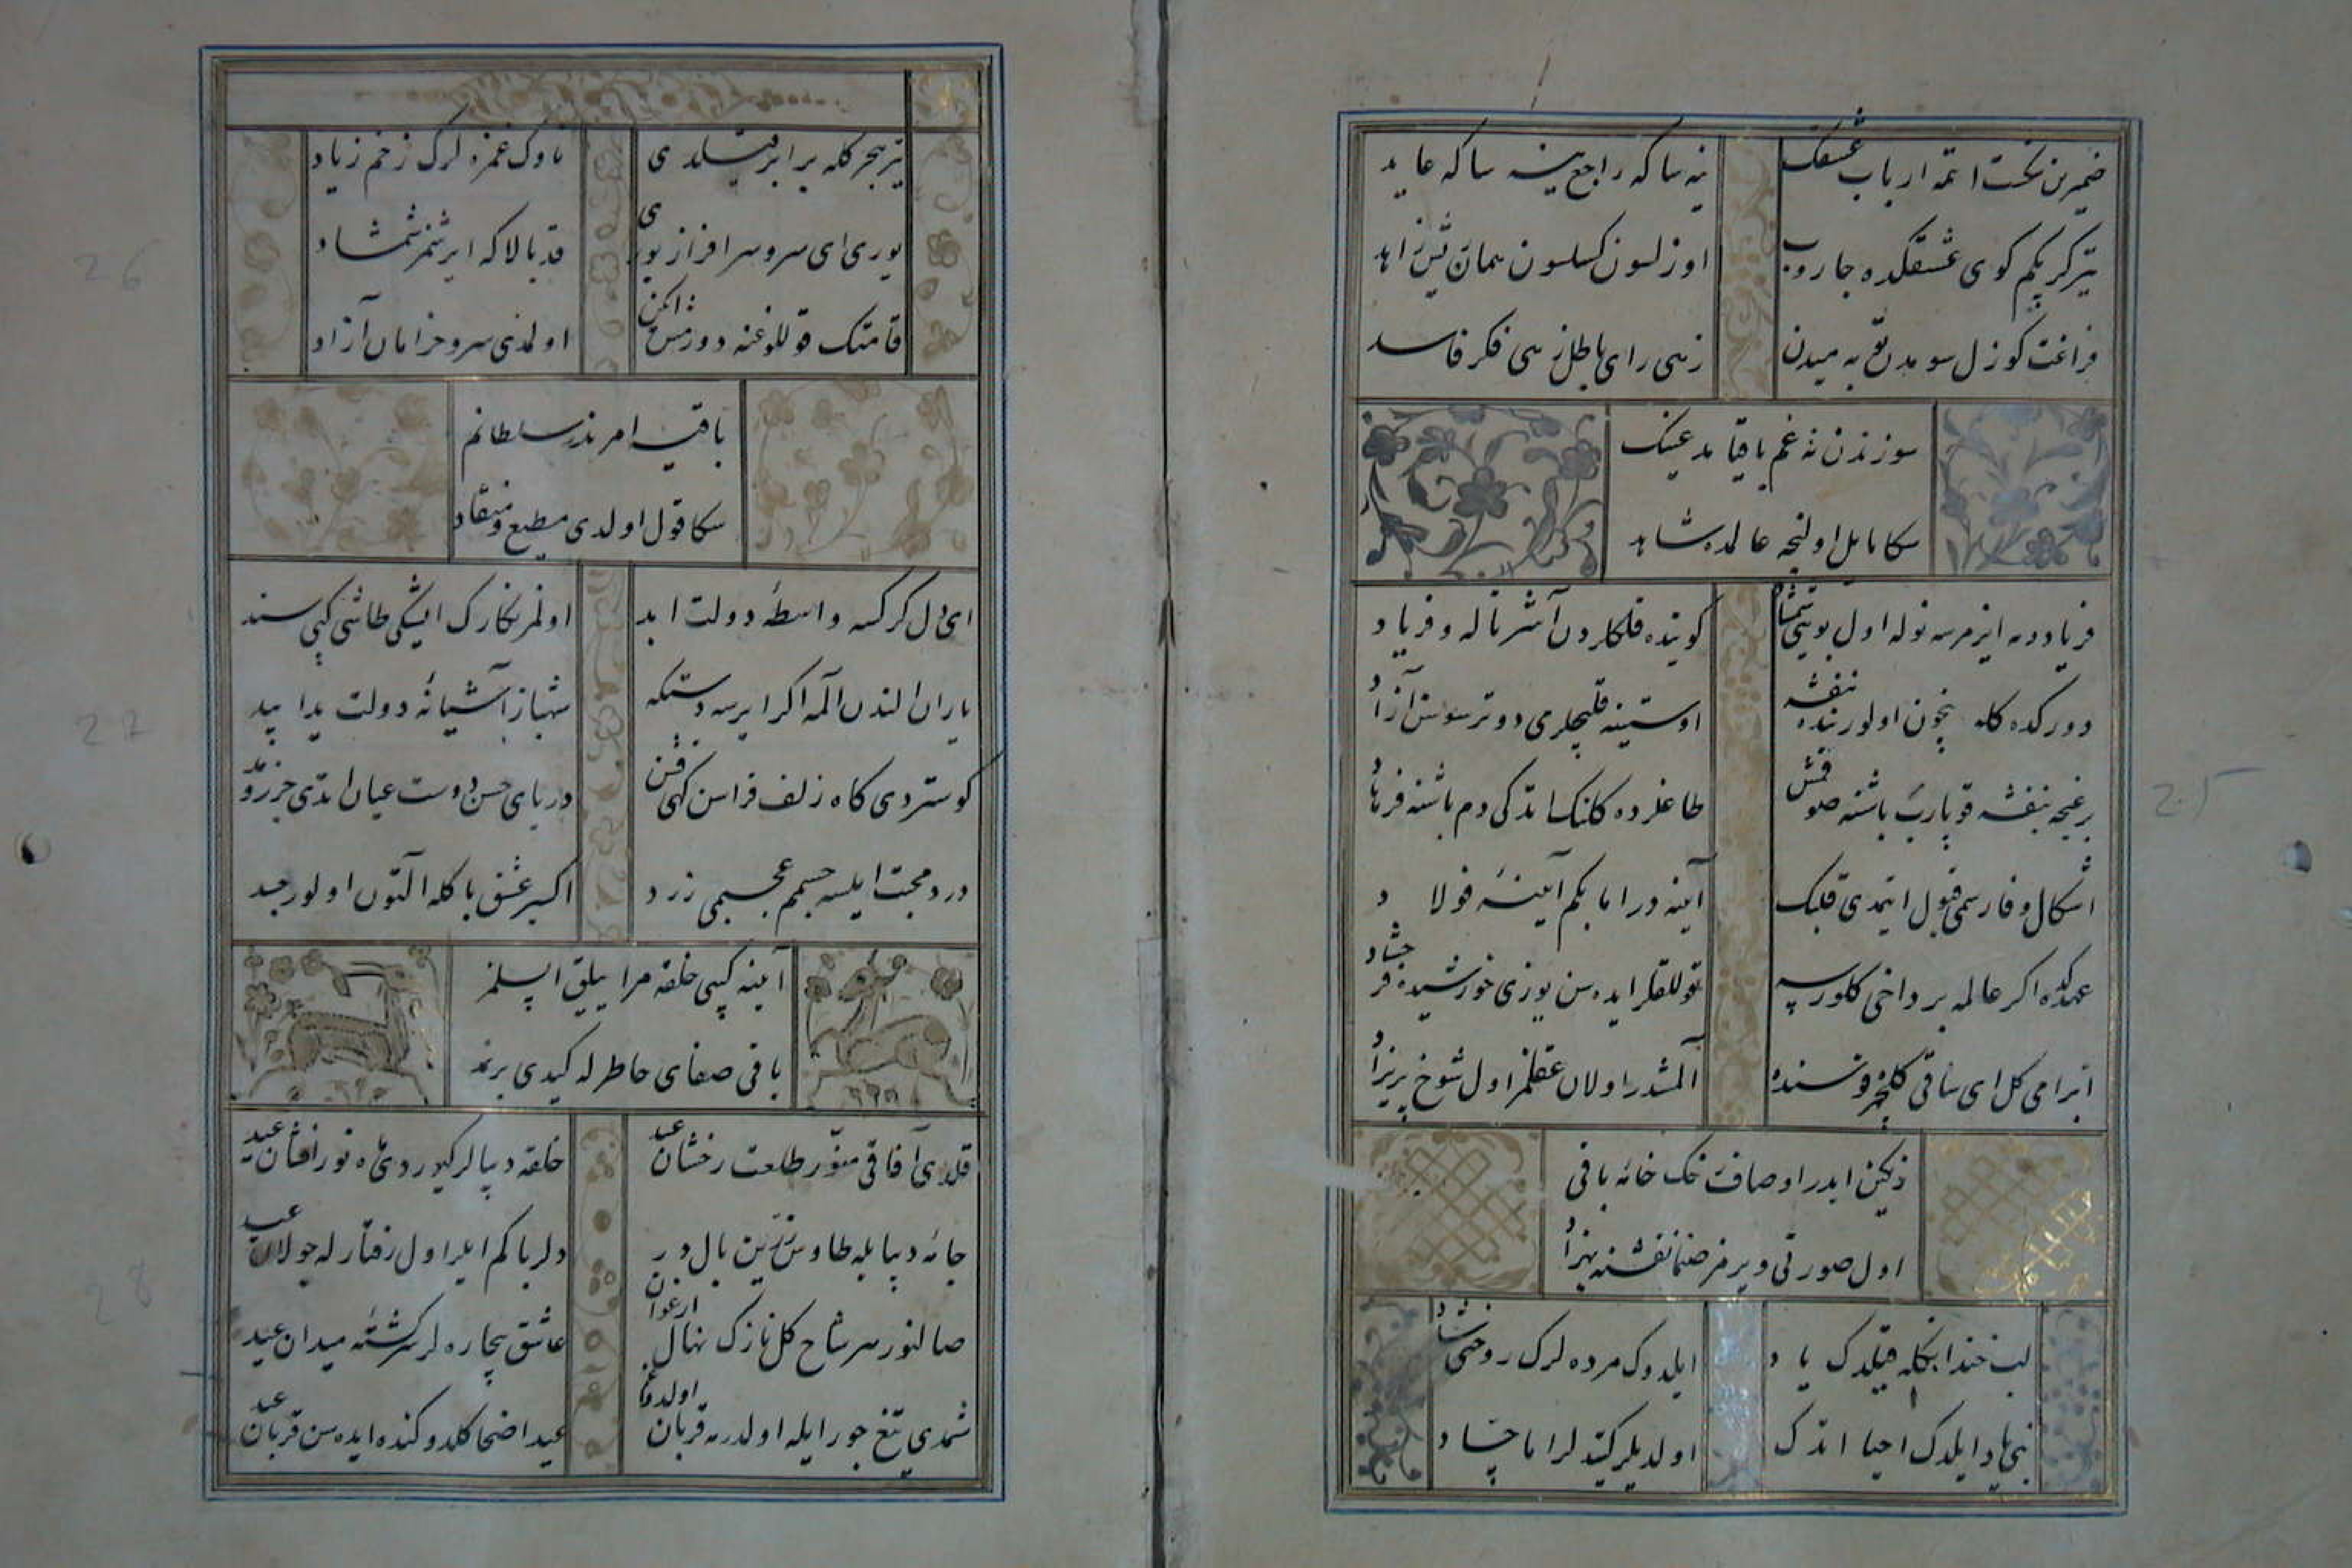 ضمیرن نکحت اتمه ارباب عشقک
نیه ساکه راجع ینه ساکه عاید
یتر کر پکم کوی عشقکده جاروب
اوزلسون کسلسون همان تیز زاهد
فراغت کوزل سومدن توبه میدن
زهی رای باطل زهی فکر فاسد
سوزندن نه غم باقیا مدعینک
سکا مایل اولنجه عالمده شاهد
فریاددمه ایرمزسه نوله اول بویی شمشاد
کوینده فلکلردن آشر ناله و فریاد
دور کده کله نچون اولور بنده بنفشه
اوستینه قلیچلرمی دوتر سوسن آزاد
بر غنچه بنفشه قوپارب باشنه صوقمش
طاغلرده کلنک اتدکی دم باشنه فرهاد
اشکال وفا رسمی قبول ایتمدی قلبک
آینه در اما بکم آیینهٔ فولاد
عهدکده اکر عالمه بر داخی کلورسه
قوللقلر ایده سن یوزی خورشیده فرحشاد
ابرامی کل ای ساقی کلچهره و سنده
آلمشدر اولان عقلمز اول شوخ پریزاد
رنکین ایدر اوصافک نک خانه باقی
اول صورتی ویرمز صنما نقشنه بهزاد
لب خندانکله قیلدک یاد
ایلدوک مرده لرک روحنی شاد
نی یاد ایلدک احیا اتدک
اولدیلر کیتدلر اما حساد
تیر هجر کله برابر قیلدی
ناوک غمزه لرک زخم زیاد
یوری ای سرو سرافراز یوری
قد بالاکه ایرشمز شمشاد
قامتک قوللوغنه دورمش ایکن
اولمدی سرو خرامان آزاد
باقیه امر نه در سلطانم
سکا قول اولدی مطیع و منقاد
ای دل کرکسه واسطهٔ دولت ابد
اولمز نکارک ایشکی طاشی کبی سند
یاران الندن المه اکر ایرسه دستکه
شهباز آشیانهٔ دولت یدا بید
کوستردی کاه زلف قراسن کهی قشن
دریای حسن دوست عیان اتدی جزر و مد
درد محبت ایلسه جسمم عجبمی زرد
اکسیر عشق با کله التون اولور جسد
آینه کبی خلقه مراییلق ایلمز
باقی صفای خاطرله کیدی بر نمد
قلدی آفاقی منور طلعت رخشان عید
خلقه دیبالر کیوردی ده نور افشان عید
جامهٔ دیبا یله طاوس زرین بال در
دلربا کم ایلر اول رفتار له جولان عید
صالنور سر شاخ کل نازک نهال ارغوان
عاشق بیچاره لر سرکشتهٔ میدان عید
شمدی تیغ جور ایله اولدرمه قربان اولدوغم
عید اضحا کلدوکنده ایده سن قربان عید